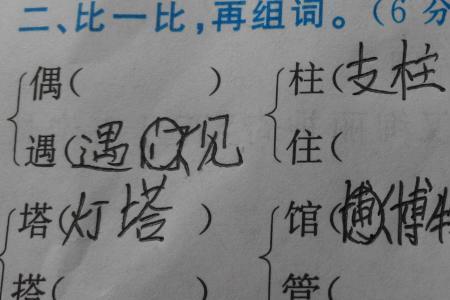 二、比一比，再组词。（6分
偶（ ） 柱（支柱
遇（遇见 住（
塔（灯塔） 馆（博物
搭（ ） 管（